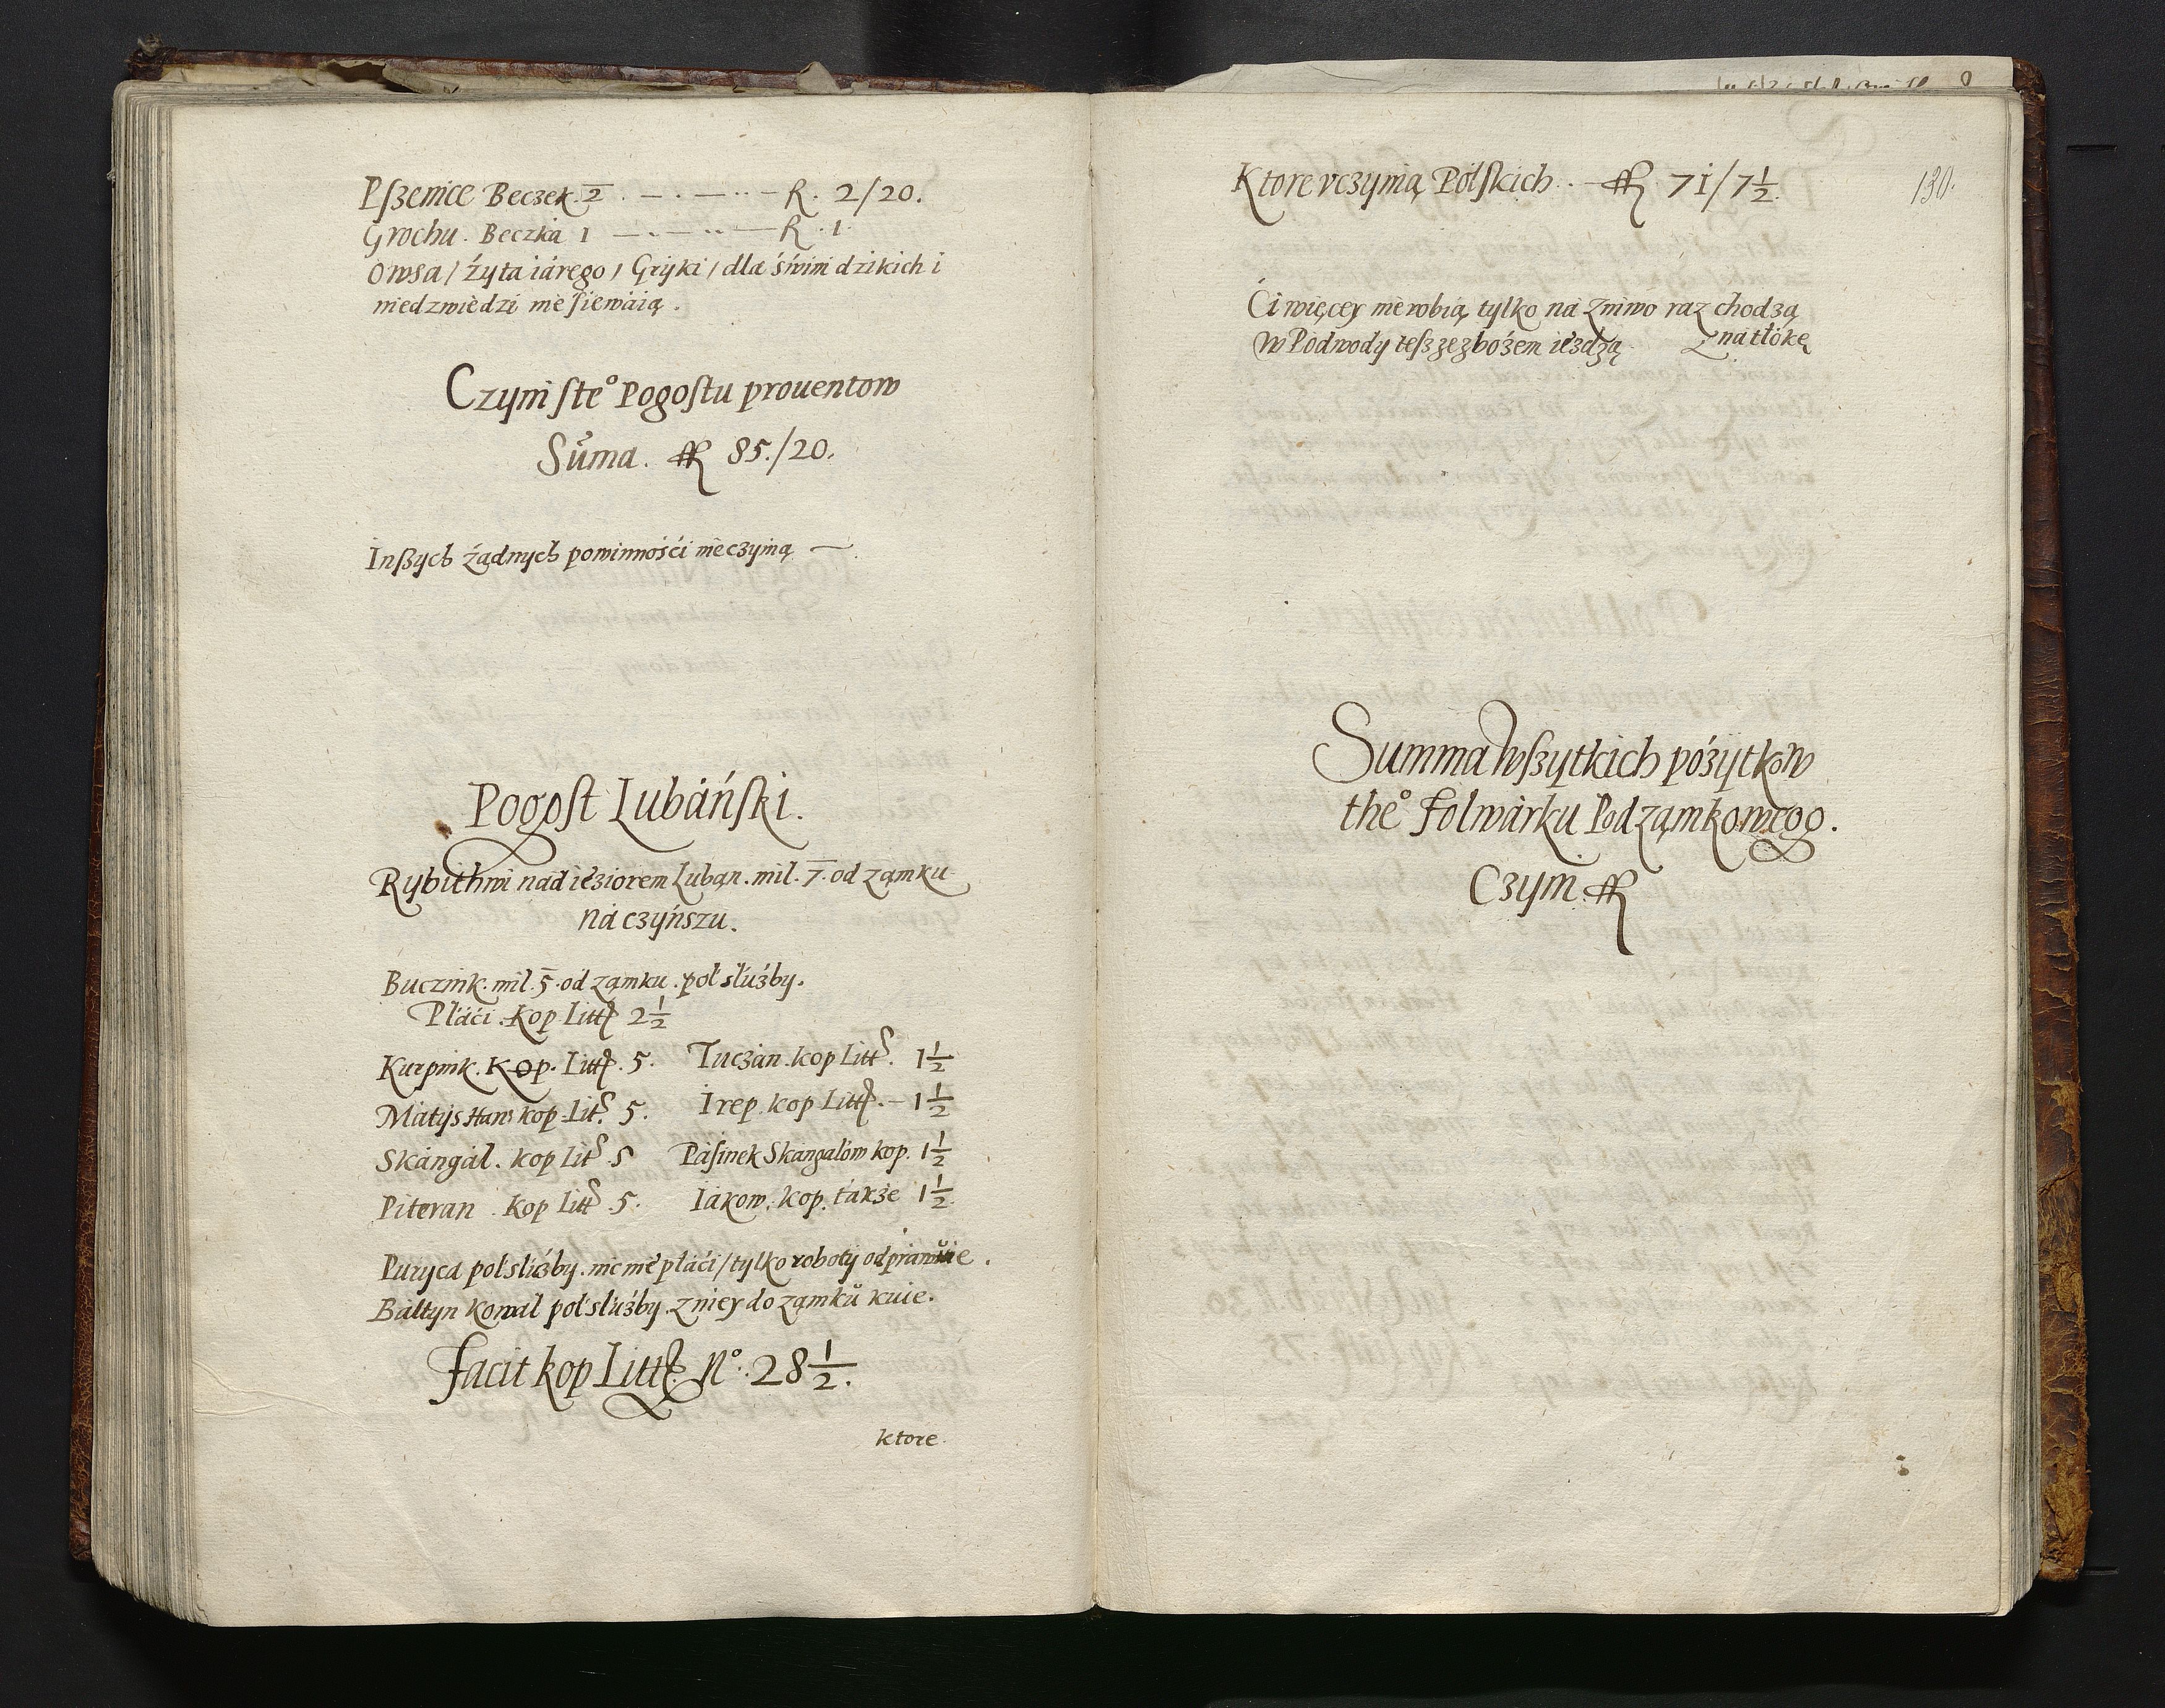 Pſzenice Beczek. 2. — . — .. — R. 2/20.
Grochu. Beczka 1 — . — .. — R. 1.
Owsa / żyta iárego / Gryki / dla świni dzikich i
niedzwiedzi nie ſiewáią.
Czyni ſte° Pogoſtu prouentow
Sūma. ff 85./20.
Inſzych żądnych powinnośći nie czynią —
Pogoſt Lubáńſki.
Rybithwi nad ieziorem Luban. mil. 7. od ząmku
ná czyńszu.
Bucznik. mil. 5. od ząmku. poł służby.
Płáći. Kop Litt 2 1/2
Kurpnik. Kop. Litt. 5. Tuczan. kop Litt. 1 1/2
Mátys Han kop Lit. 5. Irep. kop Litt. — 1 1/2
Skángál. kop Lit. 5 Páſinek Skángálow kop. 1 1/2
Piteran. Kop Litt 5. Iákow. kop. tákże 1 1/2.
Puryca poł służby. nic nie płáći / tylko roboty odpráwuie.
Báltyn kowal poł służby. z niey do ząmkŭ kuie.
facit kop Litt. N°. 28 1/2.
ktore
Ktore vczynią Polſkich .. — ff 71/7 1/2.
130.
Ći więcey nie robią tylko ná żniwo raz chodzą
W Podwody teſz ze zbożem ieżdżą. z ná tłokę
Summa wſzytkich pożytkow
the° folwárku Podząmkowego.
Czyni. ff